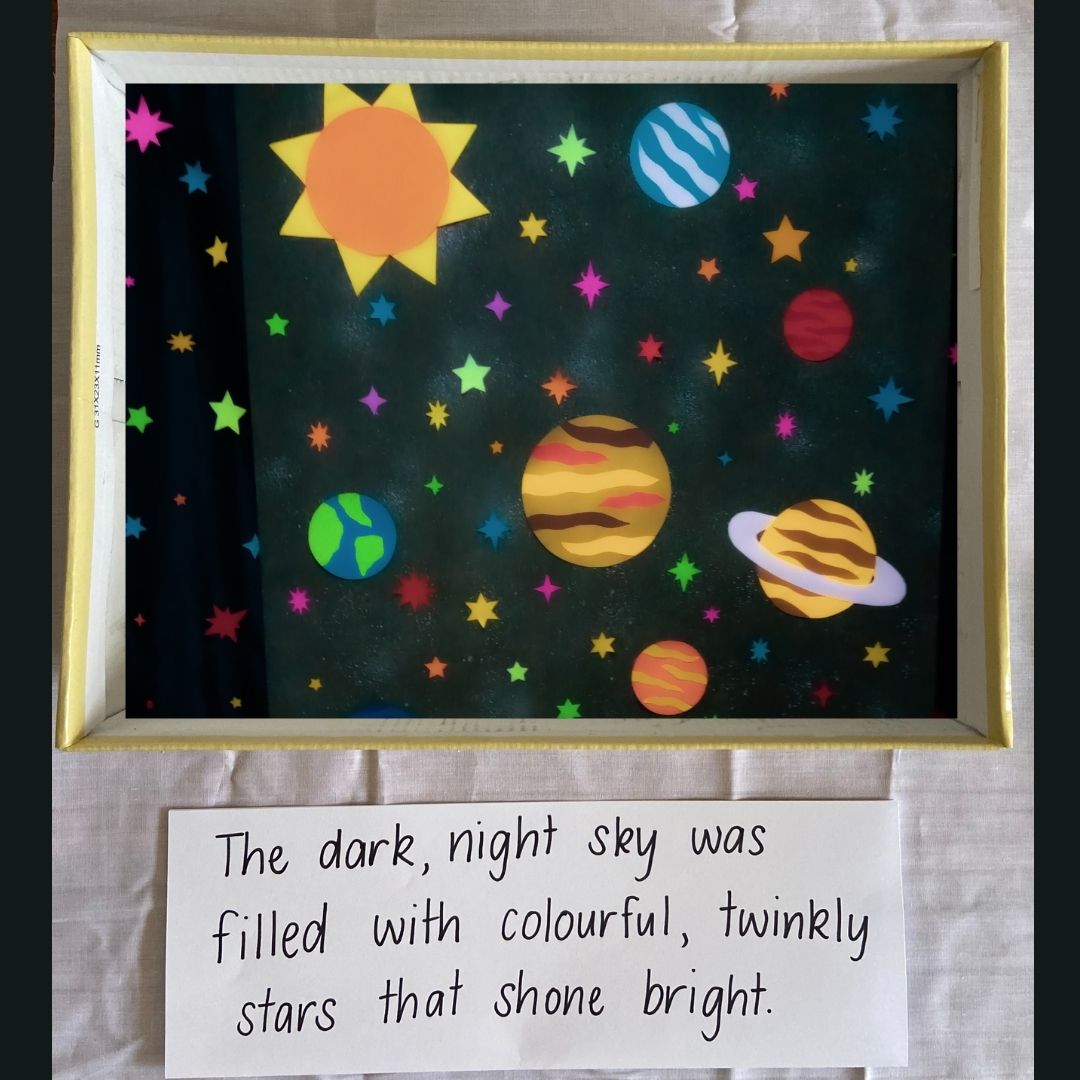 G 31X23X11mm
The dark, night sky was
filled with colourful, twinkly
stars that shone bright.